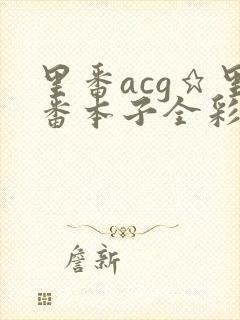 里番acg☆里
番本子全彩
詹新